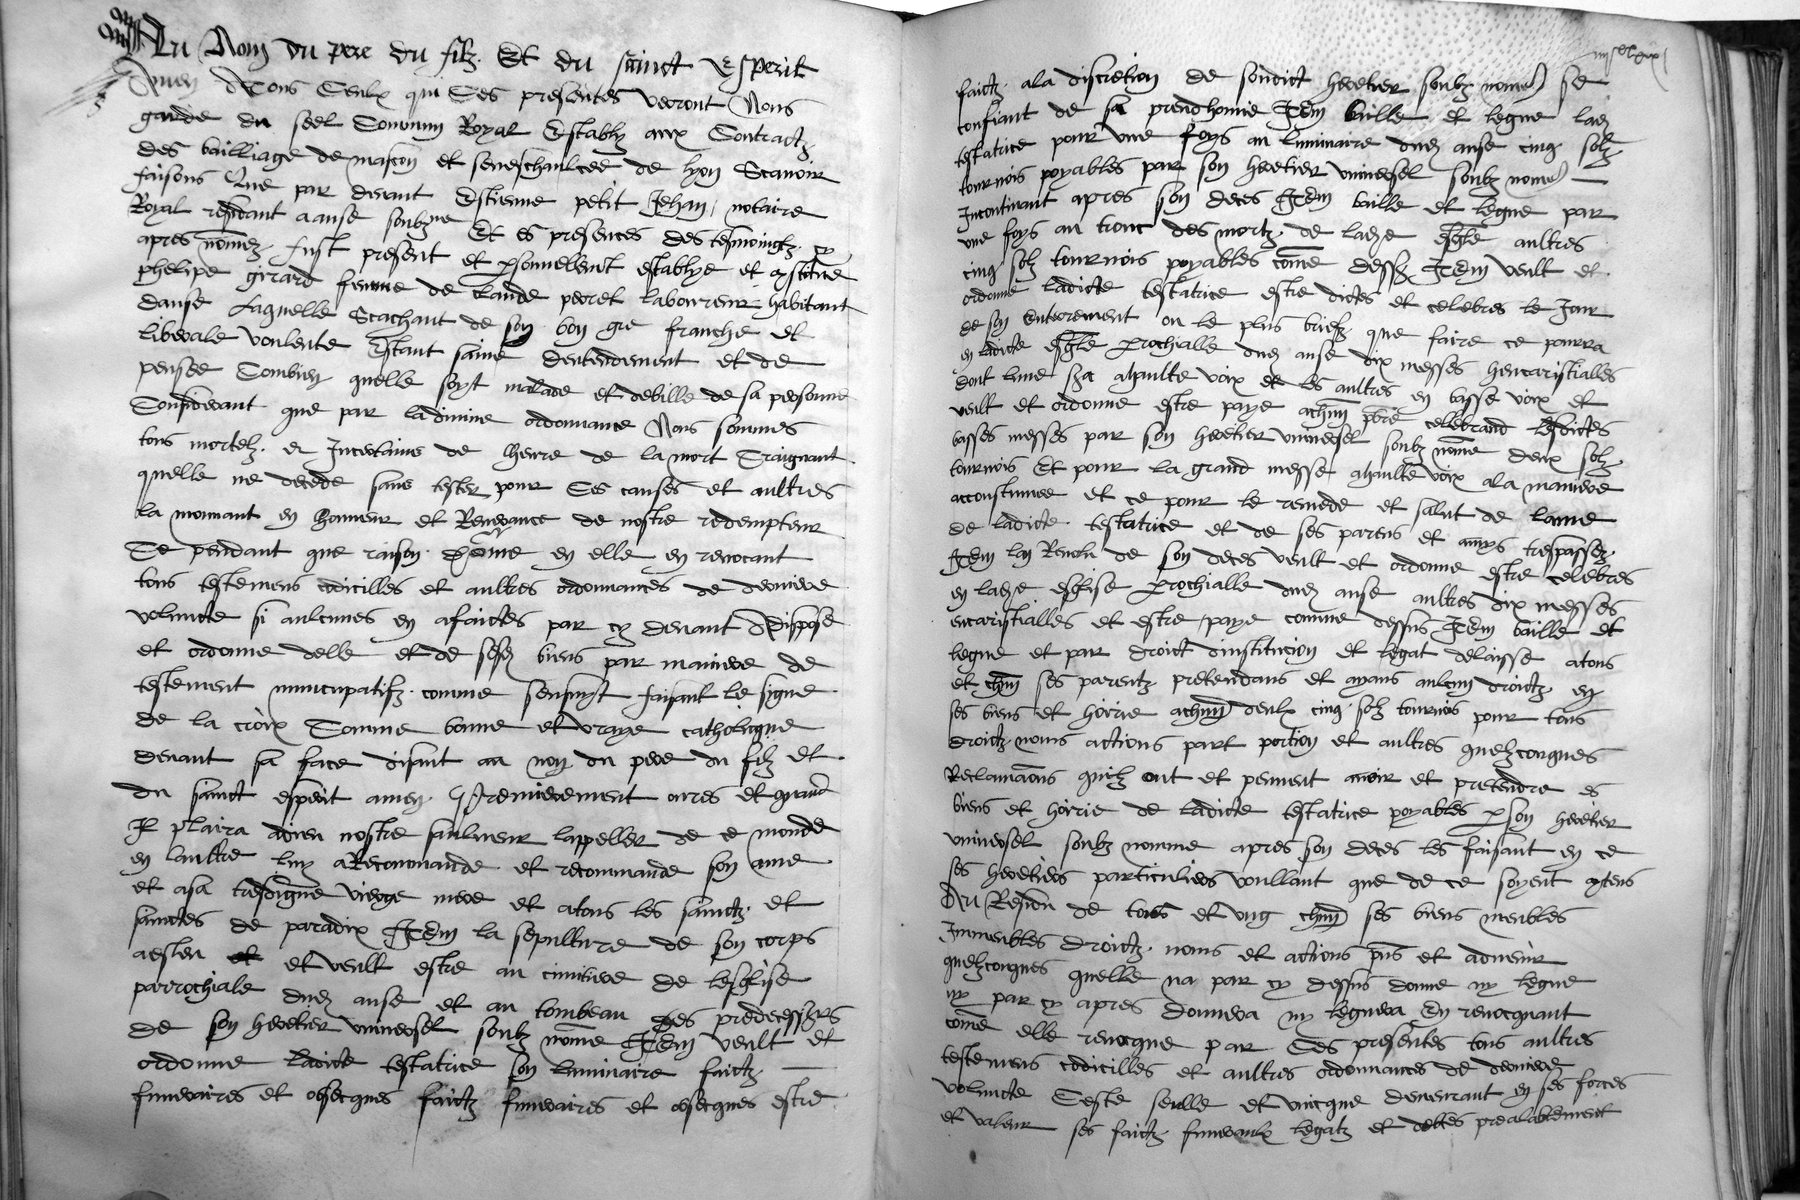 Au Nom du pere du filz Et du sainct Esperit
Amen A Tous Ceulx qui Ces presentes verront Nous
garde du seel Commun Royal Estably aux Contractz
des bailliage de mascon et seneschaulcee de lyon Scavoir
faisons Que par devant Estienne petit Jehan notaire
Royal residant a anse soubzne Et es presences des tesmoingtz cy
apres nomez fust present et psonnellemt establye et
phelipe girard femme de Claude peret laboureur habitant
danse Laquelle Scachant de son bon gre franche et
liberale voulente Estant saine dentendement et de
pensee Combien quelle soyt malade et debille de sa personne
Considerant que par la divine ordonnance Nous sommes
tous mortelz et Incertains de lheure de la mort Craignant
quelle ne decede sans tester pour Ces causes et aultres
la mouvant en honneur et Reverance de nostre redempteur
Ce pendant que raison en elle en revocant
tous testemens codicilles et aultres ordonnances de derniere
volunte si aulcunes en a faictes par cy devant Dispose
et ordonne delle et de ses biens par maniere de
testement nuncupatifz comme sensuyt faisant le signe
de la croix Comme bonne et vraye catholicque
devant sa face disant au nom du pere du filz et
du sainct esperit amen Premierement ores et quand
Il plaira a dieu nostre saulveur lappeller de ce monde
en laultre luy a Recommande et recommande son ame
et a sa tresdigne vierge mere et a tous les sainctz et
sainctes de paradix Item la sepulture de son corps
a esleu et et veult estre au cimitiere de lesglise
parrochiale dud anse et au tombeau des predecesseurs
de son heretier universel soubz nome Item veult et
ordonne ladicte testatrice son luminaire faictz
funeraires et obsecques faictz funeraires et obsecques estre
faictz a la discretion de sondict heretier soubz nome se
confiant de sa preudhomie Item baille et legue lad
testatrice pour une foys au luminaire dud anse cinq solz
tournois poyables par son heretier universel soubz nome
Incontinant apres son deces Item baille et legue par
une foys au tronc des mortz de lade esglse aultres
cinq solz tournois poyables come dessus Item veult et
ordonne ladicte testatrice estre dictes et celebres le Jour
de son enterrement ou le plus briefz que faire ce pourra
en ladicte esglse prochialle dud anse dix messes heucaristialles
dont lune sera a haulte voix et les aultres en basse voix et
veult et ordonne estre paye a chun pbre celebrand lesdictes
basses messes par son heretier universel soubz nome deux solz
tournois Et pour la grand messe a haulte voix a la maniere
accoustumee et ce pour le remede et salut de lame
de ladicte testatrice et de ses parens et amys trespassez
Item lan Revolu de son deces veult et ordonne estre celebres
en lade esglise prochialle dud anse aultres dix messes
eucaristialles et estre paye comme dessus Item baille et
legue et par droict dinstitucion et legat delaisse a tous
et chun ses parentz pretendans et ayans aulcun droictz en
ses biens et hoirie a chun deulx cinq solz tournois pour tous
droictz noms actions part portion et aultres quelzconques
Reclamaons quilz ont et peuvent avoir et pretendre es
biens et hoirie de ladicte testatrice poyables p son heretier
universel soubz nomme apres son deces les faisant en ce
ses heretiers particuliers voullant que de ce soyent
Au Residu de tous et ung chun ses biens meubles
Immeubles droictz noms et actions pns et advenir
quelzconques quelle na par cy dessus donne ny legue
ny par cy apres donnera ny leguera En revocquant
come elle revocque par Ces presentes tous aultres
testemens codicilles et aultres ordonnances de derniere
volunte Ceste seulle et unicque demeurant en ses forces
et valeur ses faictz funeraulx legatz et debtes prealablement